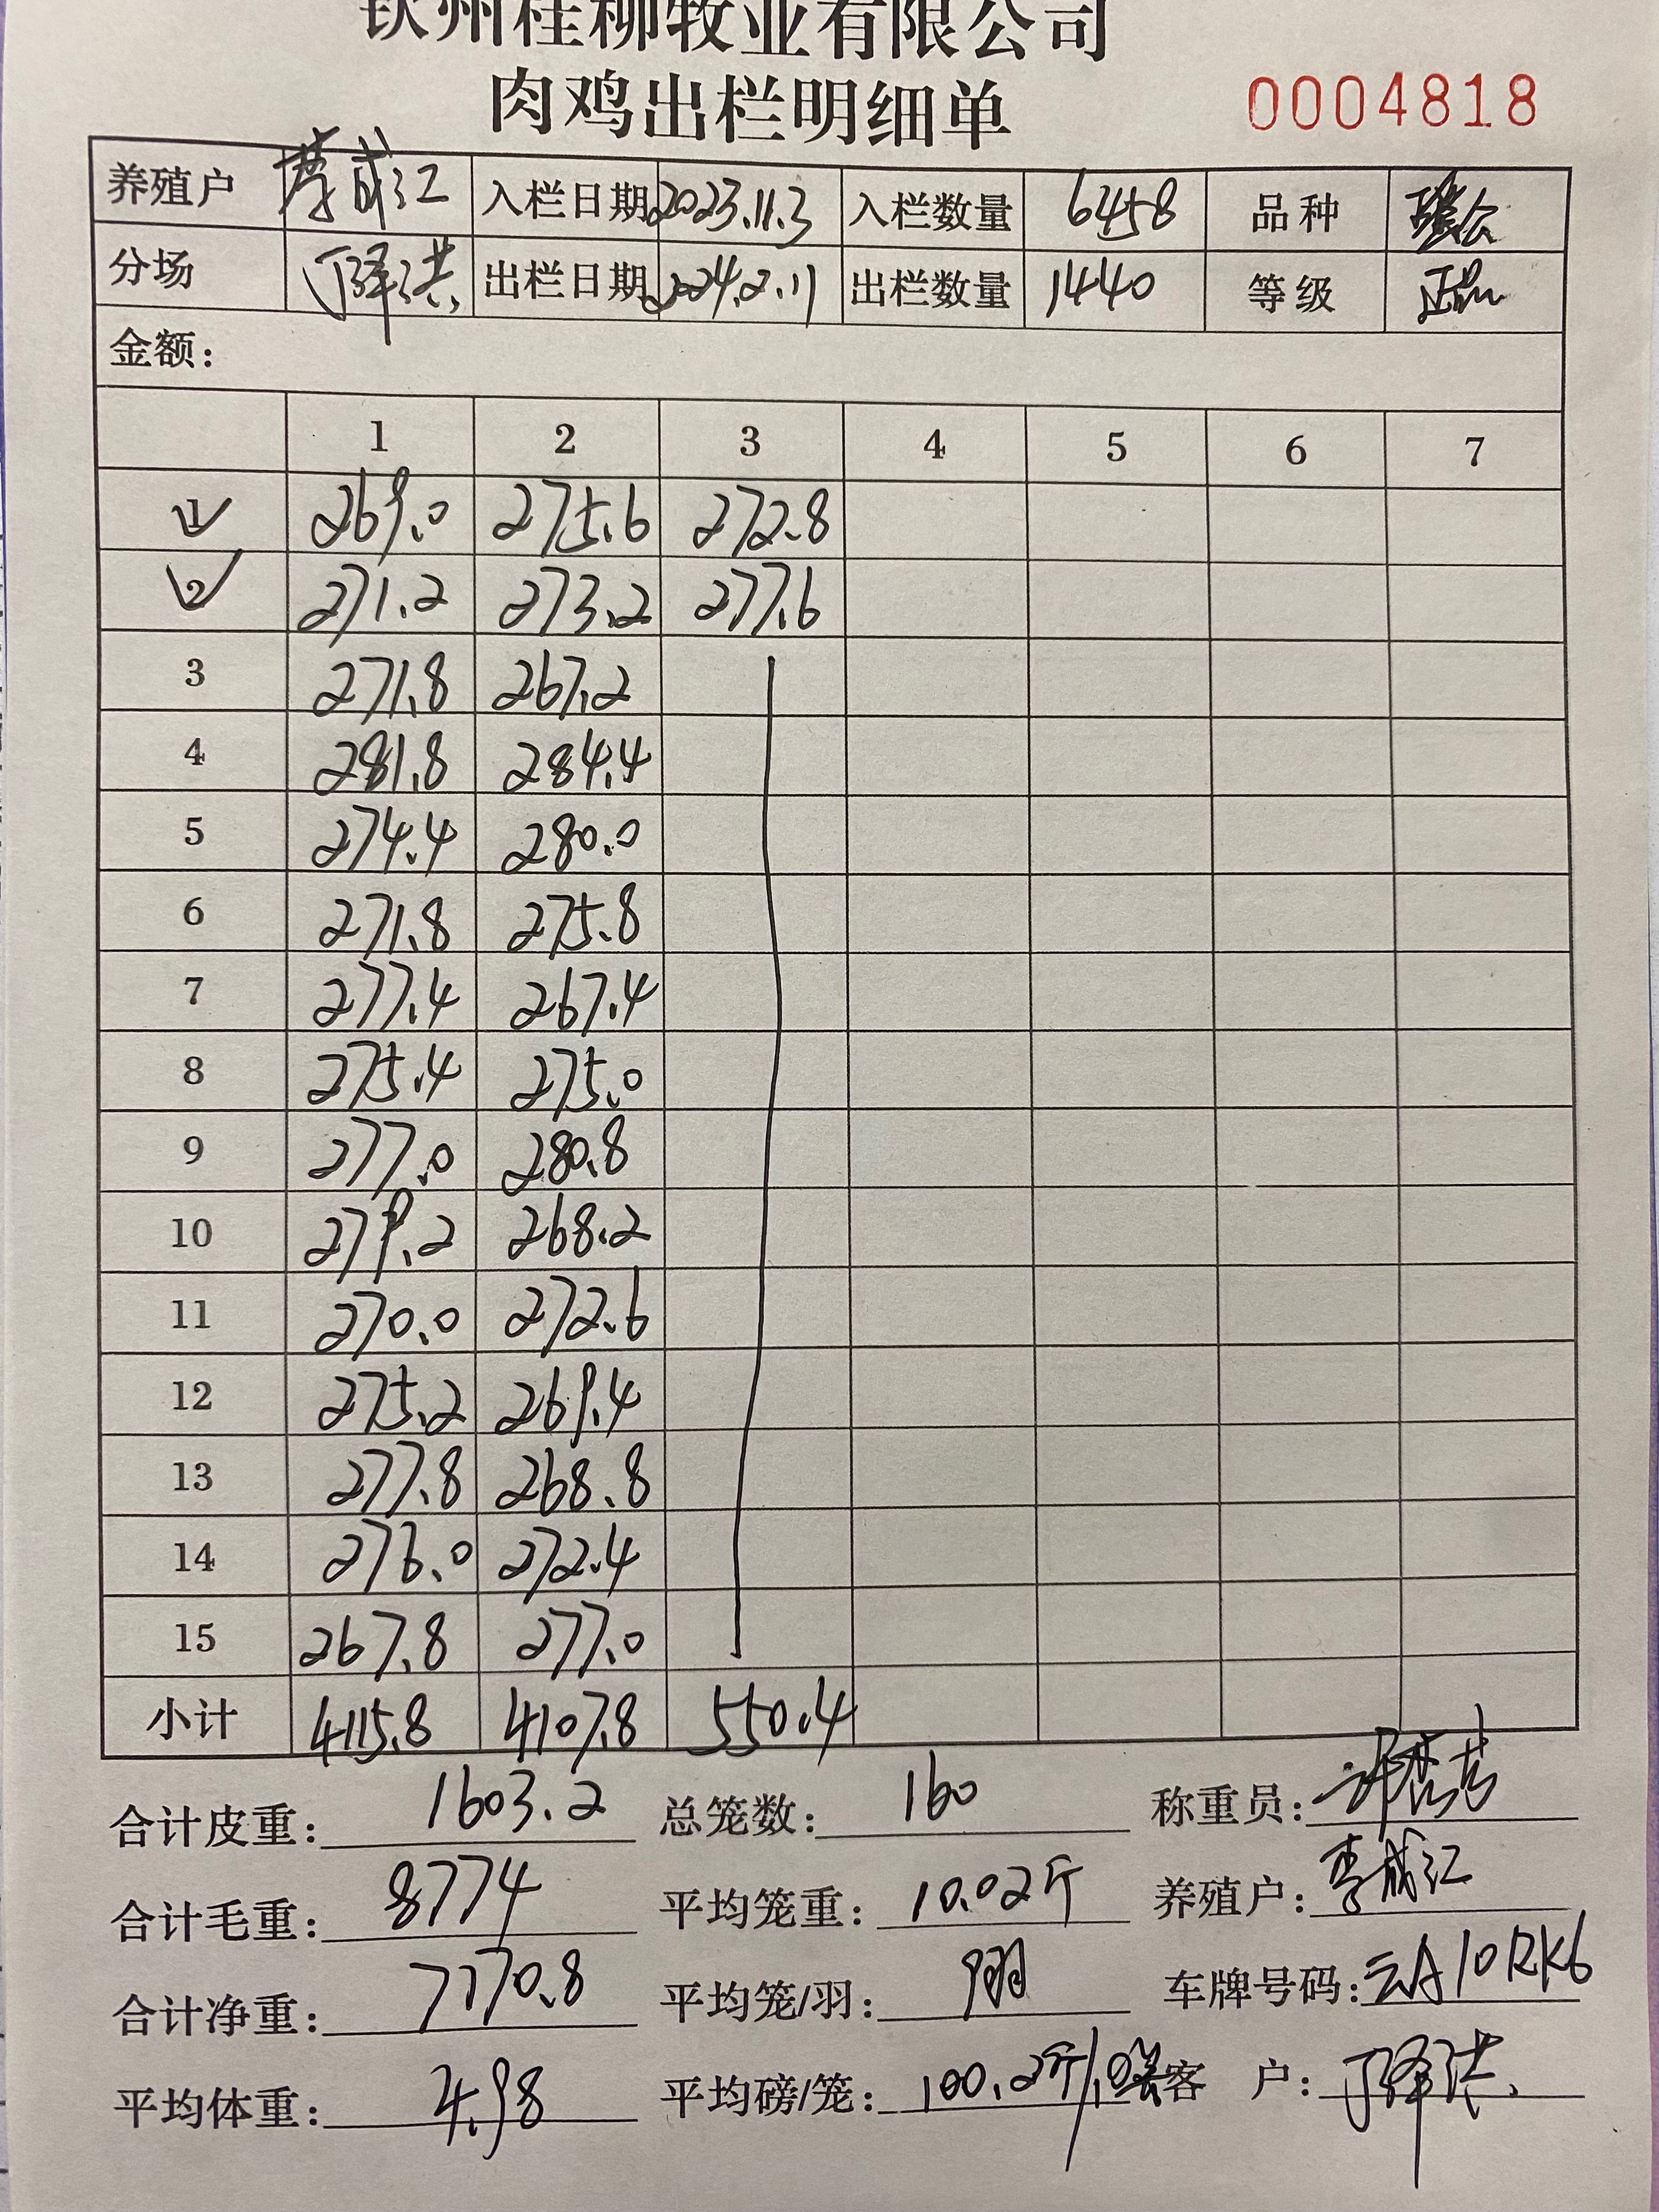 钦州桂柳牧业有限公司
肉鸡出栏明细单 0004818
养殖户 李成江 入栏日期 2023.11.3 入栏数量 6458 品种
分场 丁泽洪 出栏日期 2024.2.11 出栏数量 1440 等级 正品
金额：
1 2 3 4 5 6 7
1 269.0 275.6 272.8
2 271.2 273.2 277.6
3 271.8 267.2
4 281.8 284.4
5 274.4 280.0
6 271.8 275.8
7 277.4 267.4
8 275.4 275.0
9 277.0 280.8
10 279.2 268.2
11 270.0 272.6
12 275.2 269.4
13 277.8 268.8
14 276.0 272.4
15 267.8 277.0
小计 4115.8 4107.8 550.4
合计皮重：1603.2 总笼数：160 称重员：
合计毛重：8774 平均笼重：10.02斤 养殖户：李成江
合计净重：7170.8 平均笼/羽：9羽 车牌号码：云A10RK6
平均体重：4.98 平均磅/笼：100.2斤/10笼 客户：丁泽洪